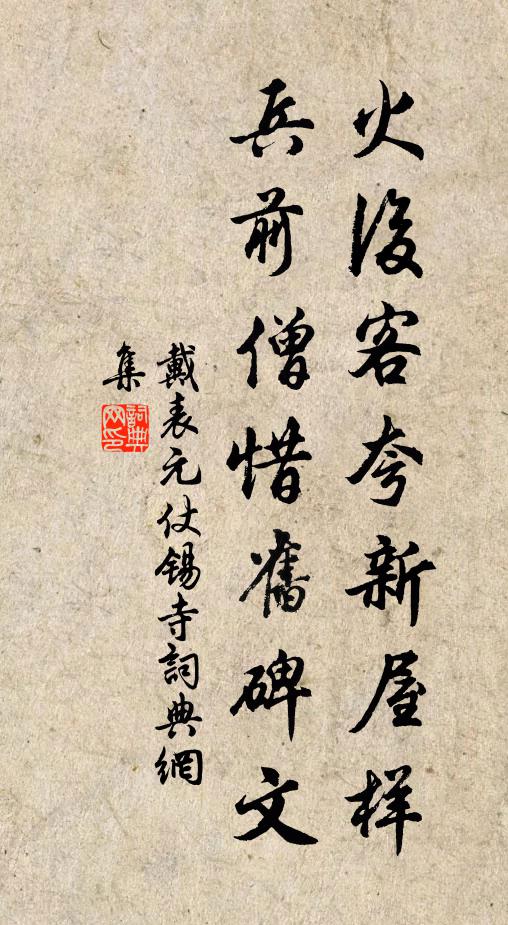 火後客夸新屋样
兵前僧惜舊碑文
戴表元仗锡寺詞典網
集
詞典網印